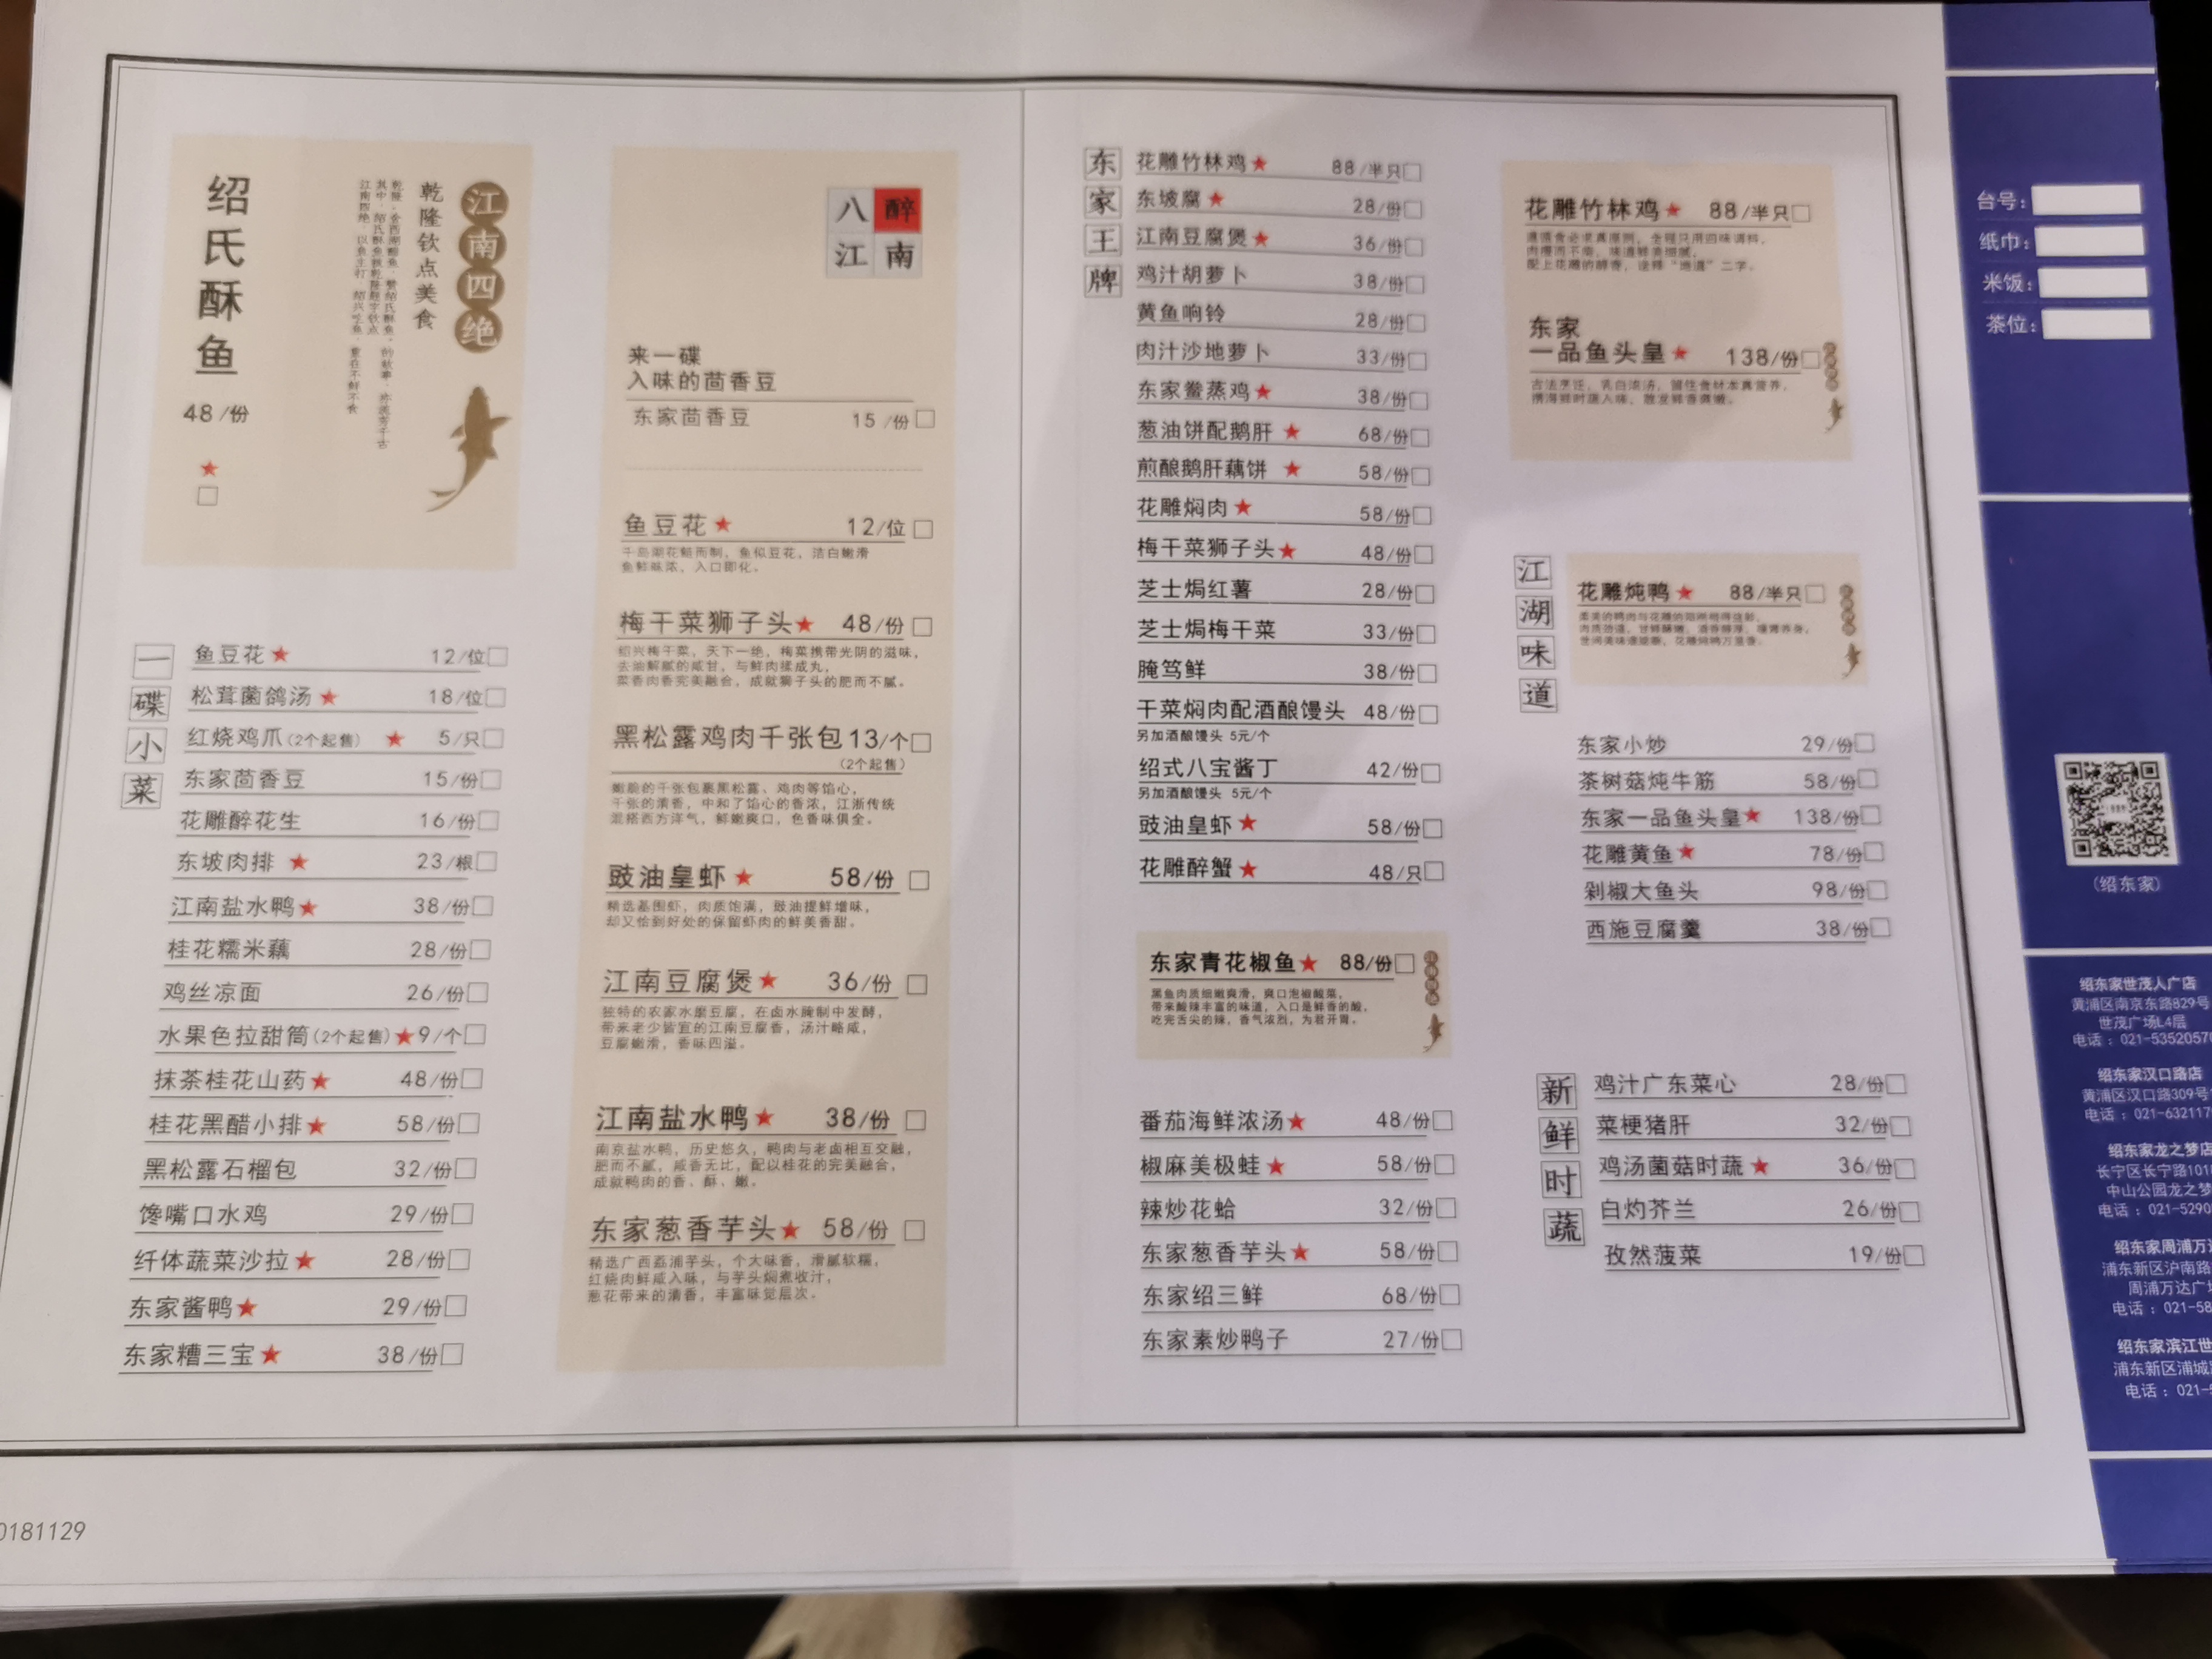 绍氏酥鱼
48/份
江南四绝
乾隆钦点美食
一碟小菜
鱼豆花★ 12/位
松茸菌鸽汤★ 18/位
红烧鸡爪(2个起售) ★ 5/只
东家茴香豆 15/份
花雕醉花生 16/份
东坡肉排 ★ 23/根
江南盐水鸭★ 38/份
桂花糯米藕 28/份
鸡丝凉面 26/份
水果色拉甜筒(2个起售)★9/个
抹茶桂花山药★ 48/份
桂花黑醋小排★ 58/份
黑松露石榴包 32/份
馋嘴口水鸡 29/份
纤体蔬菜沙拉★ 28/份
东家酱鸭★ 29/份
东家糟三宝★ 38/份
八醉
江南
来一碟
入味的茴香豆
东家茴香豆 15/份
鱼豆花★ 12/位
千岛湖花鲢而制，鱼似豆花，洁白嫩滑
鱼鲜味浓，入口即化。
梅干菜狮子头★ 48/份
绍兴梅干菜，天下一绝，梅菜携带光阴的滋味，
去油解腻的咸甘，与鲜肉揉成丸，
菜香肉香完美融合，成就狮子头的肥而不腻。
黑松露鸡肉千张包13/个
(2个起售)
嫩脆的千张包裹黑松露、鸡肉等馅心，
千张的清香，中和了馅心的香浓，江浙传统
混搭西方洋气，鲜嫩爽口，色香味俱全。
豉油皇虾★ 58/份
精选基围虾，肉质饱满，豉油提鲜增味，
却又恰到好处的保留虾肉的鲜美香甜。
江南豆腐煲★ 36/份
独特的农家水磨豆腐，在卤水腌制中发酵，
带来老少皆宜的江南豆腐香，汤汁略咸，
豆腐嫩滑，香味四溢。
江南盐水鸭★ 38/份
南京盐水鸭，历史悠久，鸭肉与老卤相互交融，
肥而不腻，咸香无比，配以桂花的完美融合，
成就鸭肉的香、酥、嫩。
东家葱香芋头★ 58/份
精选广西荔浦芋头，个大味香，滑腻软糯，
红烧肉鲜咸入味，与芋头焖煮收汁，
葱花带来的清香，丰富味觉层次。
东家王牌
花雕竹林鸡★ 88/半只
东坡腐★ 28/份
江南豆腐煲★ 36/份
鸡汁胡萝卜 38/份
黄鱼响铃 28/份
肉汁沙地萝卜 33/份
东家鲞蒸鸡★ 38/份
葱油饼配鹅肝 ★ 68/份
煎酿鹅肝藕饼 ★ 58/份
花雕焖肉★ 58/份
梅干菜狮子头★ 48/份
芝士焗红薯 28/份
芝士焗梅干菜 33/份
腌笃鲜 38/份
干菜焖肉配酒酿馒头 48/份
另加酒酿馒头 5元/个
绍式八宝酱丁 42/份
另加酒酿馒头 5元/个
豉油皇虾★ 58/份
花雕醉蟹★ 48/只
东家青花椒鱼★ 88/份
黑鱼肉质细嫩爽滑，爽口泡椒酸菜，
带来酸辣丰富的味道，入口是鲜香的酸，
吃完舌尖的辣，香气浓烈，为君开胃。
番茄海鲜浓汤★ 48/份
椒麻美极蛙★ 58/份
辣炒花蛤 32/份
东家葱香芋头★ 58/份
东家绍三鲜 68/份
东家素炒鸭子 27/份
花雕竹林鸡★ 88/半只
配上花雕的醇香，诠释“地道”二字。
东家
一品鱼头皇★ 138/份
古法烹饪，乳白浓汤，留住食材本真营养，
江湖味道
花雕炖鸭★ 88/半只
东家小炒 29/份
茶树菇炖牛筋 58/份
东家一品鱼头皇★ 138/份
花雕黄鱼★ 78/份
剁椒大鱼头 98/份
西施豆腐羹 38/份
新鲜时蔬
鸡汁广东菜心 28/份
菜梗猪肝 32/份
鸡汤菌菇时蔬★ 36/份
白灼芥兰 26/份
孜然菠菜 19/份
台号:
纸巾:
米饭:
茶位:
(绍东家)
绍东家世茂人广店
黄浦区南京东路829号
世茂广场L4层
电话：021-5352057
绍东家汉口路店
黄浦区汉口路309号
电话：021-632117
绍东家龙之梦店
长宁区长宁路101
中山公园龙之梦
电话：021-5290
绍东家周浦万
浦东新区沪南路
周浦万达广
电话：021-58
绍东家滨江世
浦东新区浦城
电话：021-5
0181129